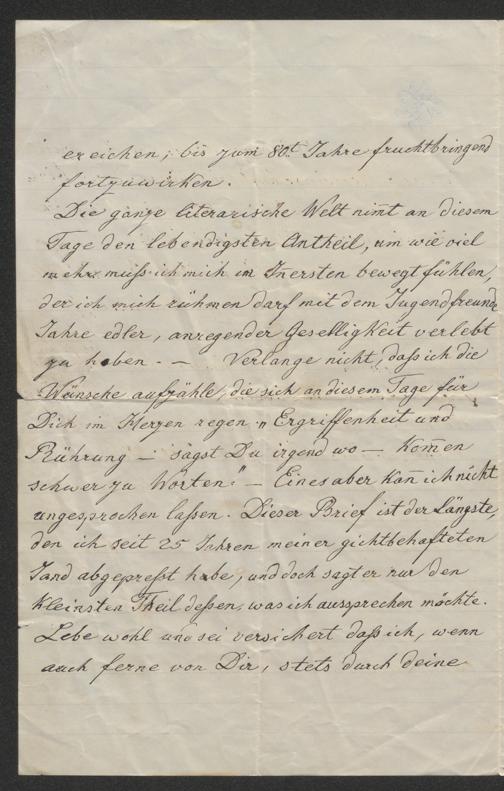 ereichen, bis zum 80t Jahre fruchtbringend
fortzuwirken.
Die ganze literarische Welt nim̄t an diesem
Tage den lebendigsten Antheil, um wie viel
mehr muß ich mich im Inersten bewegt fühlen,
der ich mich rühmen darf mit dem Jugendfreunde
Jahre edler, anregender Geselligkeit verlebt
zu haben. — Verlange nicht, daß ich die
Wünsche aufzähle, die sich an diesem Tage für
Dich im Herzen regen „Ergriffenheit und
Rührung — sagst Du irgend wo — kom̄en
schwer zu Worten." — Eines aber kan̄ ich nicht
ungesprochen laßen. Dieser Brief ist der Längste,
den ich seit 25 Jahren meiner gichtbehafteten
Hand abgepreßt habe, und doch sagt er nur den
kleinsten Theil deßen, was ich aussprechen möchte.
Lebe wohl und sei versichert daß ich, wenn
auch ferne von Dir, stets durch deine